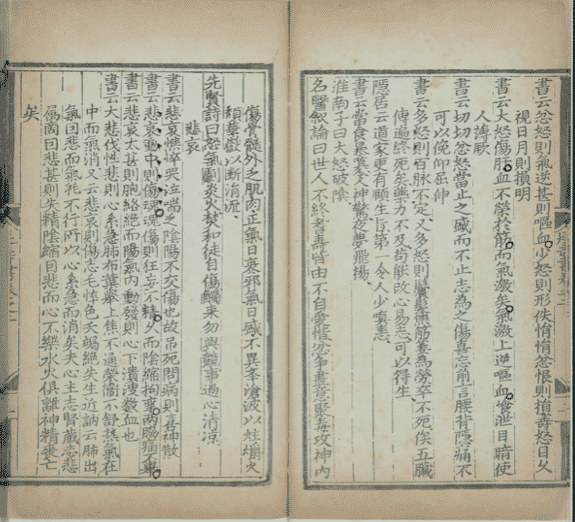 書云忿怒則氣逆甚則嘔血少怒則形佚悁悁忿恨則損壽怒目久
視日月則損明
書云大怒傷肝血不榮於筋而氣激矣氣激上逆嘔血飧泄目暗使
人薄厥
書云切切忿怒當止之盛而不止志為之傷喜忘前言腰背隱痛不
可以俛仰屈伸
書云多怒則百脈不定又多怒則鬢髮焦筋萎為勞卒不死俟五臟
傳遍終死矣藥力不及苟能改心易志可以得生
隱居云道家更有頤生旨第一令人少嗔恚
書云當食暴嗔令人神驚夜夢飛揚
淮南子曰大怒破陰
名醫叙論曰世人不終耆壽皆由不自愛惜忿爭盡意聚毒攻神內
傷骨髓外乏肌肉正氣日衰邪氣日盛不異舉滄波以炷爝火
頹華嶽以斷涓流
先賢詩曰怒氣劇炎火焚和徒自傷觸來勿與競事過心清凉
悲哀
書云悲哀憔悴哭泣喘乏陰陽不交傷也故弔死問病則喜神散
書云悲哀動中則傷魂魂傷則狂妄不精久而陰縮拘攣兩脇痛不舉
書云悲哀太甚則胞絡絕而陽氣內動發則心下潰溲數血也
書云大悲伐性悲則心系急肺布葉舉上焦不通榮衛不舒熱氣在
中而氣消又云悲哀則傷志毛悴色夭竭絕失生近訥云肺出
氣因悲而氣耗不行所以心系急而消矣夫心主志腎藏志悲
屬商因悲甚則失精陰縮因悲而心不樂水火俱離神精喪亡
矣